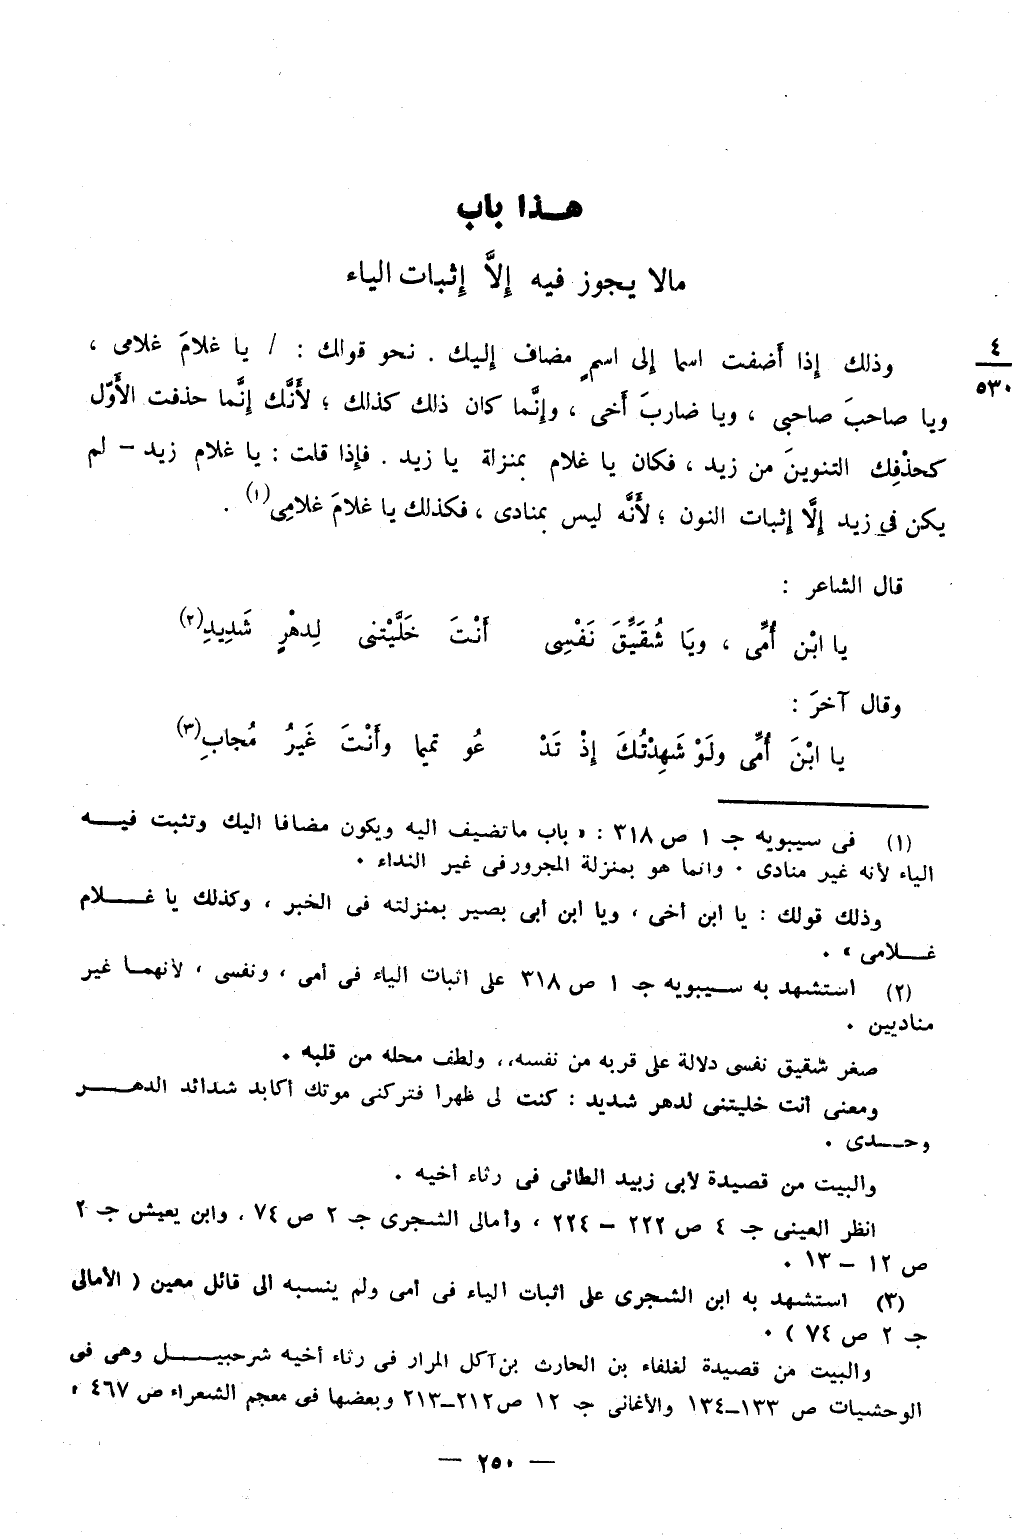 هـــذا باب
مالا يجوز فيه إلاَّ إثبات الياء
وذلك إذا أَضفت اسما إلى اسمٍ مضاف إليك . نحو قولك : / يا غلامَ غلامى ،
٤
٥٣٠
ويا صاحبَ صاحبي ، ويا ضاربَ أَخى ، وإنَّما كان ذلك كذلك ؛ لأَنَّك إنَّما حذفت الأَوّل
كحذْفِك التنوينَ من زيد ، فكان يا غلام بمنزلة يا زيد . فإذا قلت : يا غلام زيد – لم
يكن في زيد إلَّا إثبات النون ؛ لأَنَّه ليس بمنادى ، فكذلك يا غلامَ غلامِى(١) .
قال الشاعر :
يا ابْن أُمِّى ، ويَا شُقَيِّقَ نَفْسِى أَنْتَ خَلَّيْتنى لِدهْرٍ شَدِيدِ(٢)
وقال آخرَ :
يا ابْنَ أُمِّى ولَوْ شَهِدْتُكَ إذْ تَدْ عُو تميما وأَنْتَ غَيرُ مُجابِ(٣)
(١) فى سيبويه جـ ١ ص ٣١٨ : « باب ما تضيف اليه ويكون مضافا اليك وتثبت فيـــه
الياء لأنه غير منادى ٠ وانما هو بمنزلة المجرور فى غير النداء ٠
وذلك قولك : يا ابن أخى ، ويا ابن أبى بصير بمنزلته فى الخبر ، وكذلك يا غـــلام
غـــلامى » .
(٢) استشهد به ســيبويه جـ ١ ص ٣١٨ على اثبات الياء فى أمى ، ونفسى ، لأنهمــا غير
مناديين ٠
صغر شقيق نفسى دلالة على قربه من نفسه،، ولطف محله من قلبه ٠
ومعنى أنت خليتنى لدهر شديد : كنت لى ظهرا فتركنى موتك أكابد شدائد الدهـــر
وحـــدى ٠
والبيت من قصيدة لأبى زبيد الطائى فى رثاء أخيه .
انظر العينى جـ ٤ ص ٢٢٢ – ٢٢٤ ، وأمالى الشجرى جـ ٢ ص ٧٤ ، وابن يعيش جـ ٢
ص ١٢ – ١٣ ٠
(٣) استشهد به ابن الشجرى على اثبات الياء فى أمى ولم ينسبه الى قائل معين ( الأمالى
جـ ٢ ص ٧٤ ) ٠
والبيت من قصيدة لغلفاء بن الحارث بن آكل المرار فى رثاء أخيه شرحبيـــل وهى فى
الوحشيات ص ١٣٣–١٣٤ والأغانى جـ ١٢ ص ٢١٢–٢١٣ وبعضها فى معجم الشعراء ص ٤٦٧ ٠
— ٢٥٠ —